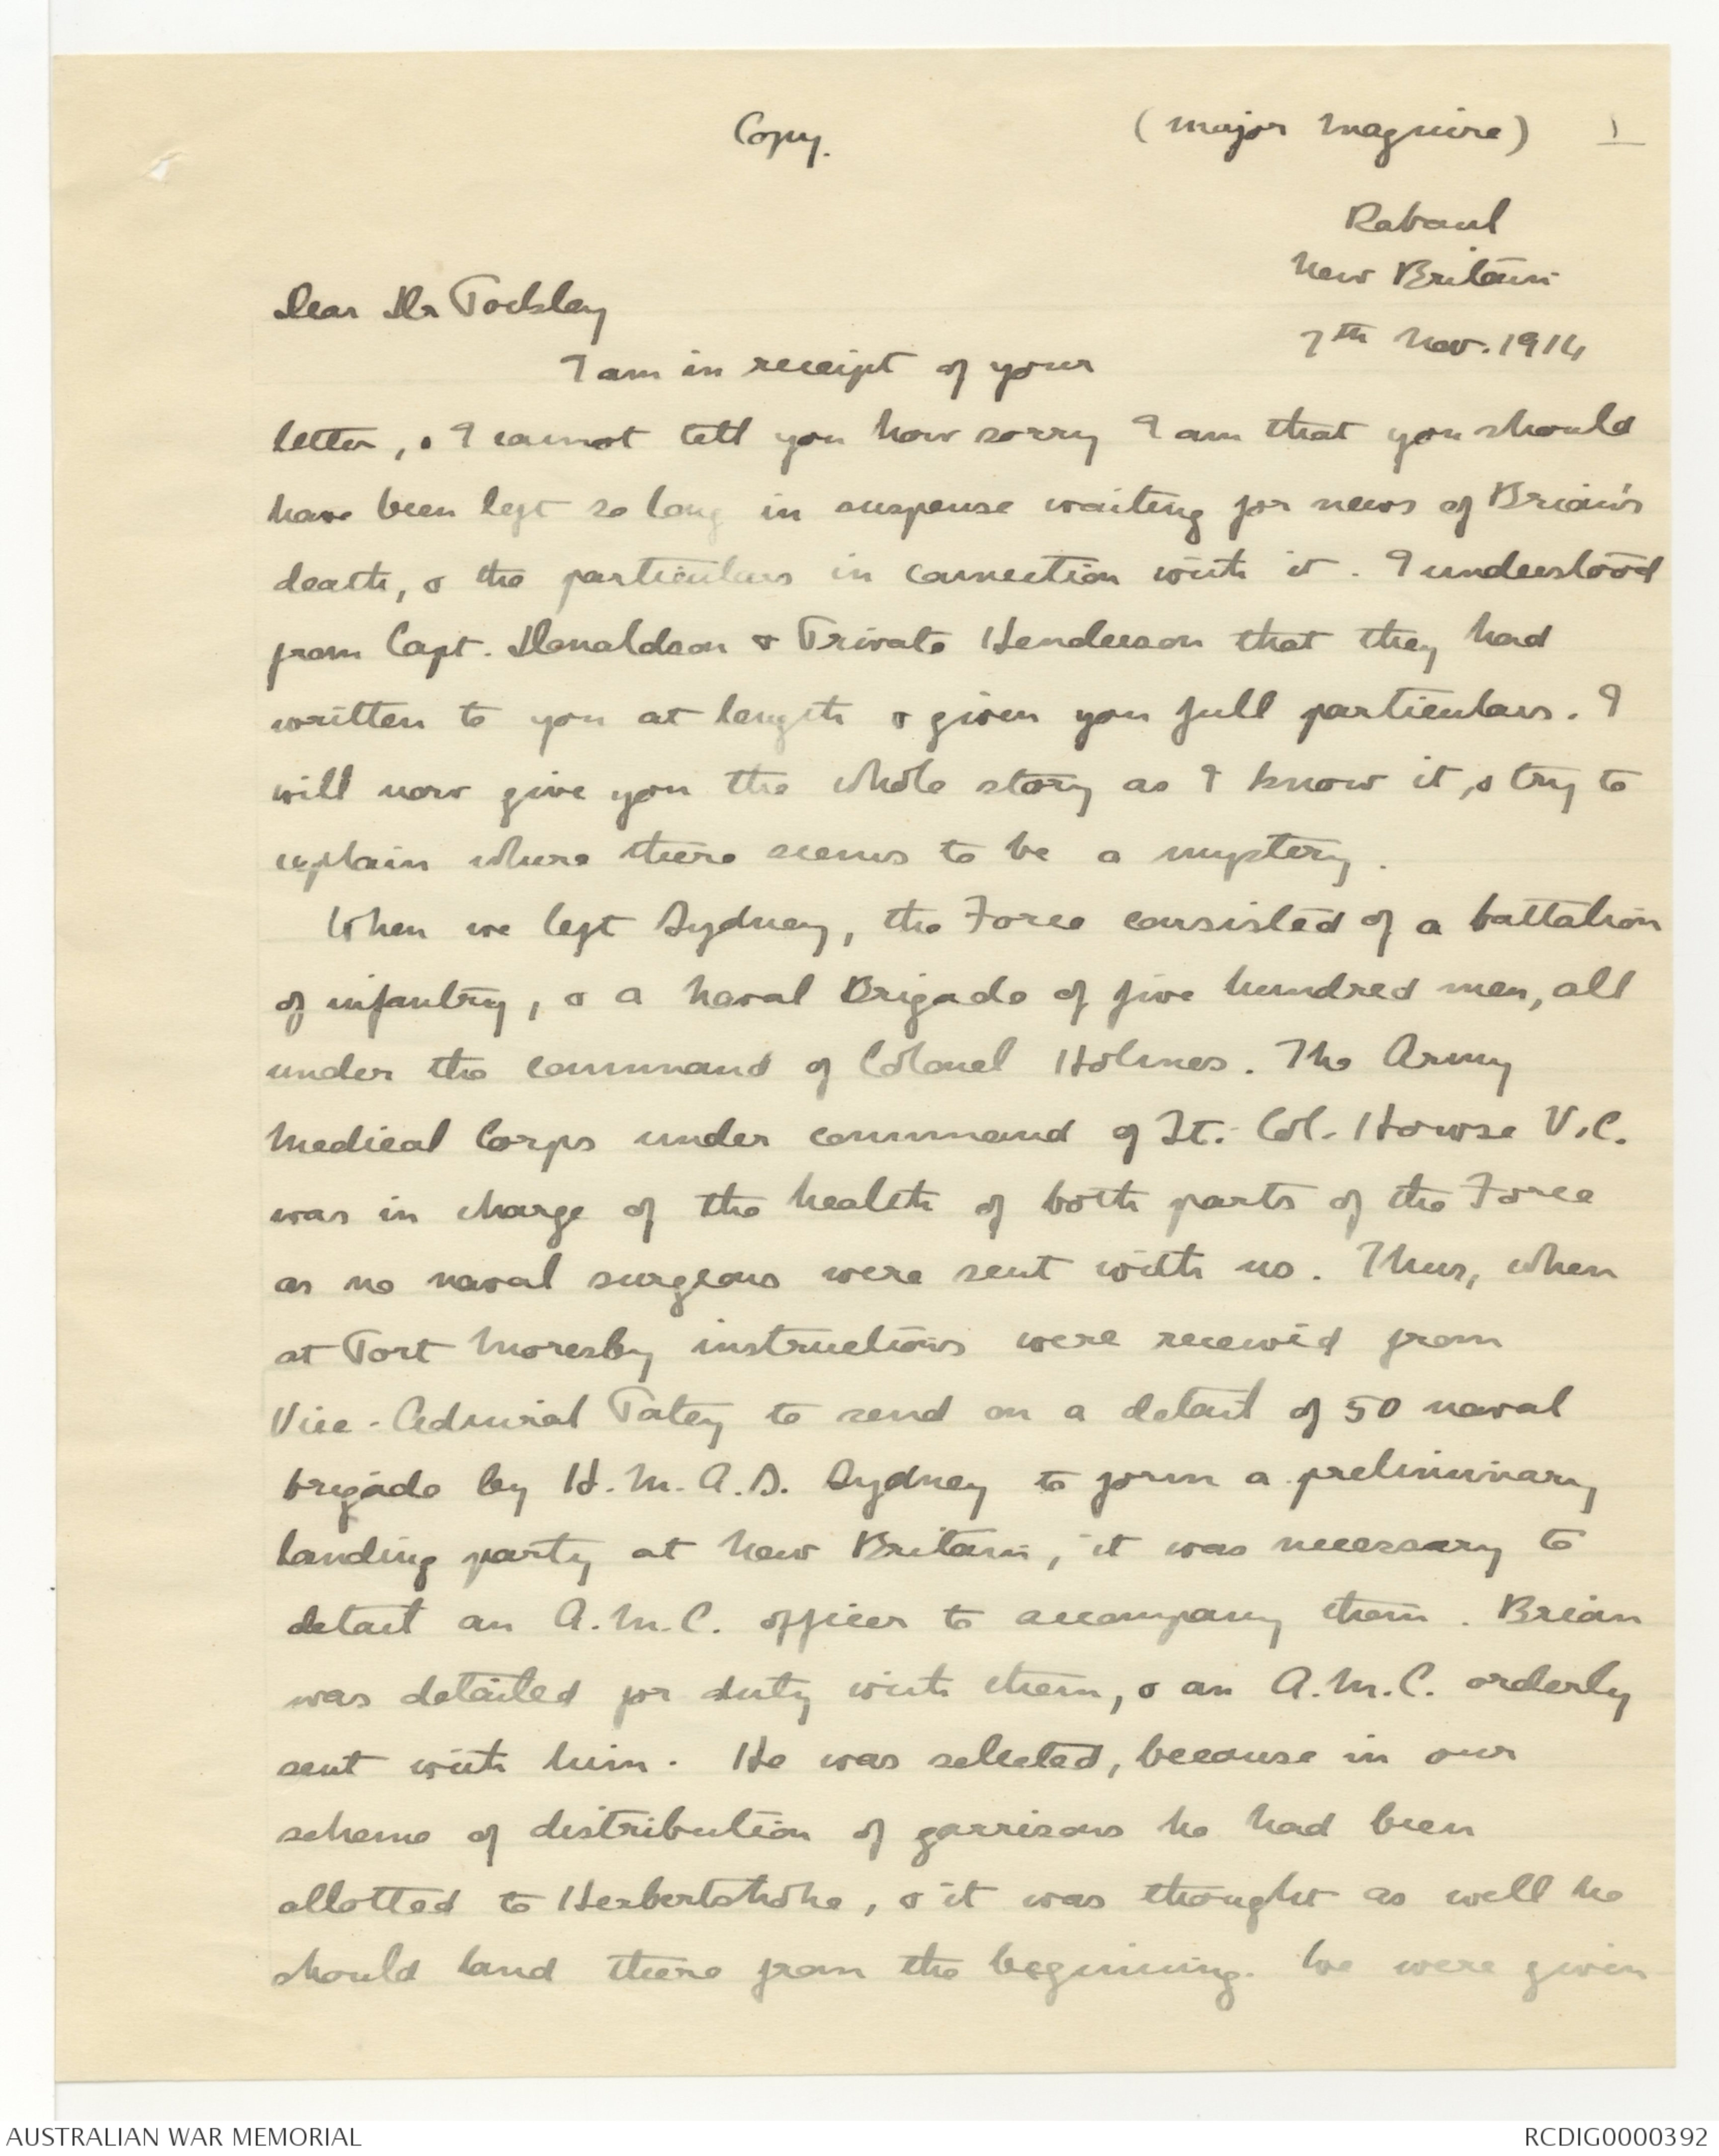 Copy. (Major Maguire) 1
Rabaul
New Britain
7th Nov. 1914
Dear Dr Pockley
I am in receipt of your
letter, & I cannot tell you how sorry I am that you should
have been left so long in suspense waiting for news of Brian's
death, & the particulars in connection with it. I understood
from Capt. Donaldson & Private Henderson that they had
written to you at length & given you full particulars. I
will now give you the whole story as I know it, & try to
explain where there seems to be a mystery.
When we left Sydney, the Force consisted of a battalion
of infantry, & a Naval Brigade of five hundred men, all
under the command of Colonel Holmes. The Army
Medical Corps under command of Lt. Col. Howse V.C.
was in charge of the health of both parts of the Force
as no naval surgeons were sent with us. Thus, when
at Port Moresby instructions were received from
Vice-Admiral Patey to send on a detail of 50 naval
brigade by H.M.A.S. Sydney to form a preliminary
landing party at New Britain, it was necessary to
detail an A.M.C. officer to accompany them. Brian
was detailed for duty with them, & an A.M.C. orderly
sent with him. He was selected, because in our
scheme of distribution of garrisons he had been
allotted to Herbertshöhe, & it was thought as well he
should land there from the beginning. We were given
AUSTRALIAN WAR MEMORIAL RCDIG0000392